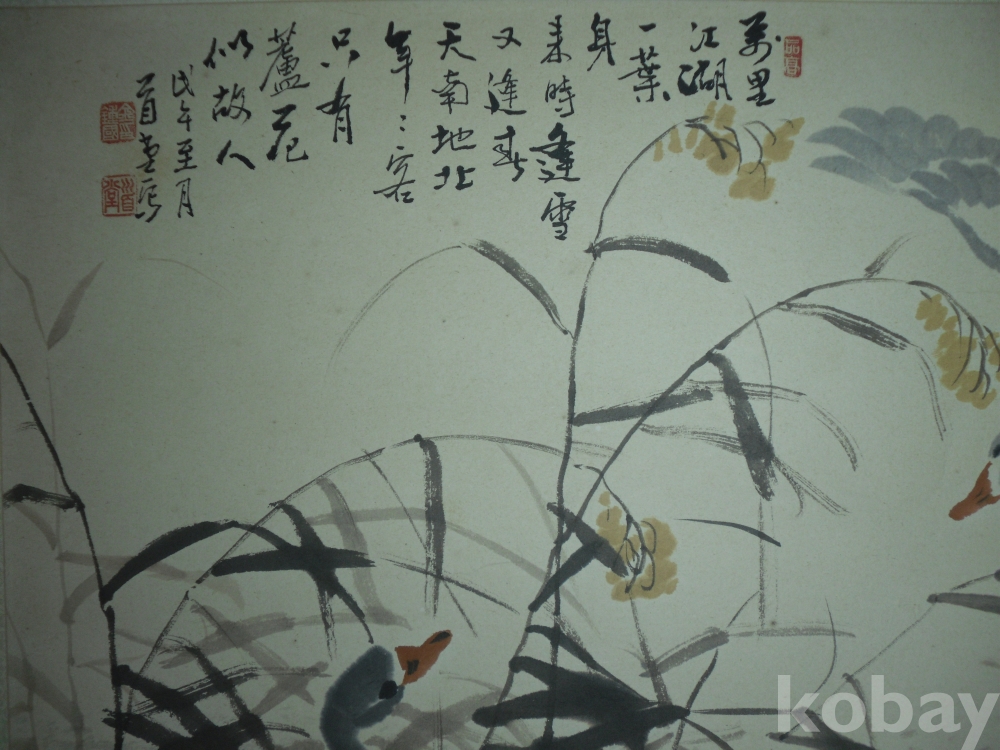 萬里
江湖
一葉
身
来時逢雪
又逢春
天南地北
年〻客
只有
蘆花
似故人
戊午至月
首堂写
kobay